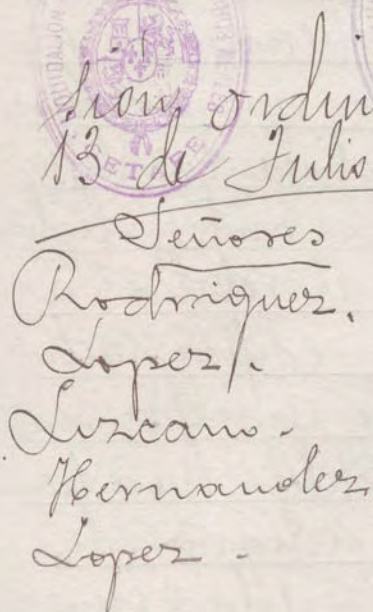 sión ordin
13 de Julio
Señores
Rodriguez.
Lopez.
Lizcano.
Hernandez
Lopez.